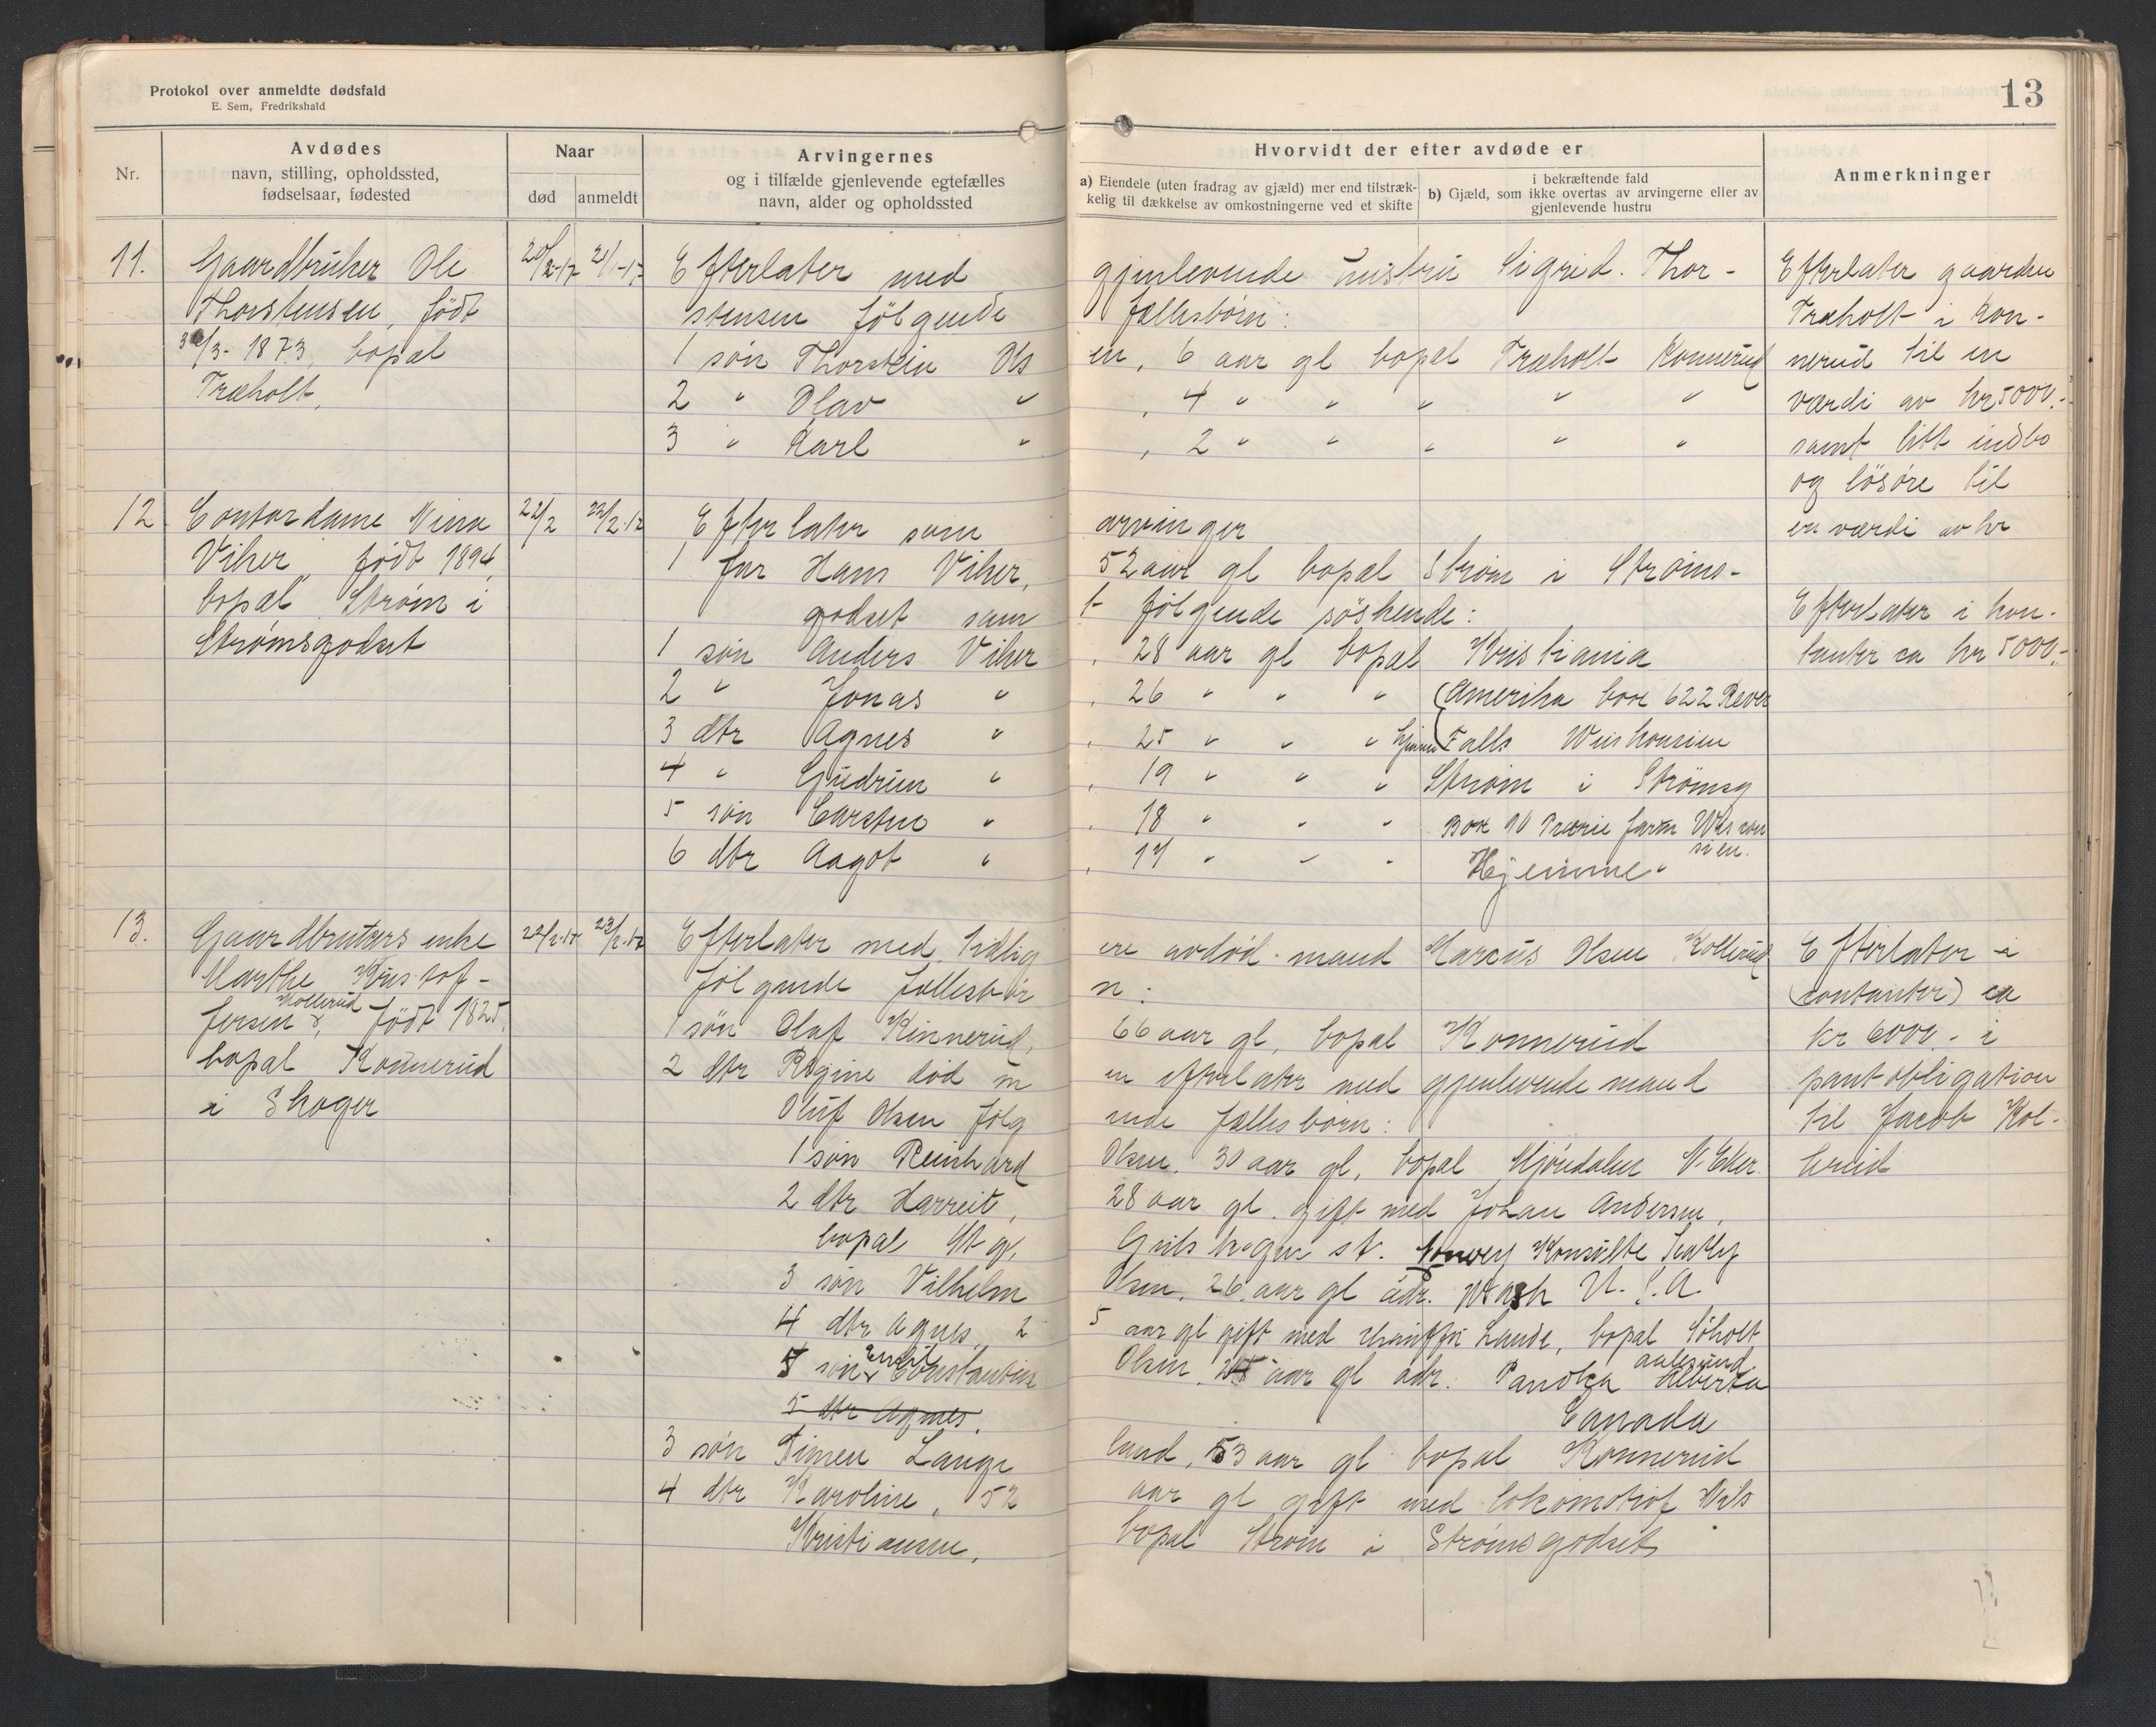 Protokol over anmeldte dødsfald
E. Sem, Fredrikshald
13
Nr.
Avdødes
navn, stilling, opholdssted,
fødselsaar, fødested
Naar
død
anmeldt
Arvingernes
og i tilfælde gjenlevende egtefælles
navn, alder og opholdssted
Hvorvidt der efter avdøde er
a) Eiendele (uten fradrag av gjæld) mer end tilstræk-
kelig til dækkelse av omkostningerne ved et skifte
i bekræftende fald
b) Gjæld, som ikke overtas av arvingerne eller av
gjenlevende hustru
Anmerkninger
11.
Gaardbruker Ole
Thorstensen, født
3/3- 1873, bopæl
Træholt,
20/2-17
21/1-17
Efterlater med gjenlevende hustru Sigrid. Thor-
stensen følgende fællesbørn:
1 søn Thorstein Olsen, 6 aar gl bopæl Træholt Konnerud
2 " Olav " , 4 " " " " "
3 " Karl " , 2 " " " " "
Efterlater gaarden
Træholt i Kon-
nerud til en
værdi av kr 5000.-
samt litt indbo
og løsøre til
en værdi av kr
12
Contordame Nina
Viker, født 1894,
bopæl Strøm i
Strømsgodset
22/2
23/2.17
Efterlater som arvinger
1 far Hans Viker, 52 aar gl bopæl Strøm i Strøms-
godset samt følgende søskende:
1 søn Anders Viker, 28 aar gl bopæl Kristiania
2 " Jonas " , 26 " " " (Amerika box 622 River
3 dtr Agnes " , 25 " " " hjemme (Falls Wiskonsien
4 " Gudrun " , 19 " " " Strøm i Strømsg
5 søn Carsten " , 18 " " " Box 90 Prærie farm Wiscon
sien.
6 dtr Aagot " , 17 " " " Hjemme "
Efterlater i kon-
tanter ca kr 5000.-
13.
Gaardbrukers enke
Marthe Kristof-
fersen Kollerud, født 1825,
bopæl Konnerud
i Skoger
22/2.17
23/2.17
Efterlater med tidligere avdød mand Marcus Olsen Kollerud
følgende fællesbørn:
1 søn Olaf Kinnerud, 66 aar gl, bopæl Konnerud
2 dtr Regine død men efterlater med gjenlevende mand
Oluf Olsen følgende fællesbørn:
1 søn Reinhard Olsen. 30 aar gl, bopæl Mjøndalen N. Eker.
2 dtr Harreit, 28 aar gl. gift med Johan Andersen,
bopæl
3 søn Vilhelm Olsen, 26 aar gl adr. Wash U.S.A.
4 dtr Agnes, 25 aar gl gift med Lande, bopæl Søholt
aalesund
5 søn Emil Constantin Olsen, aar gl adr. Panoka Alberta
Canada
5 dtr Agnes.
3 søn Simen Langeland, 53 aar gl bopæl Konnerud
4 dtr Karoline, 52 aar gl gift med lokomotivf Nils
Kristiansen, bopæl Strøm i Strømsgodset
Efterlater i
(contanter) ca
kr 6000.- i
pantobligation
til Jacob Kol-
lerud